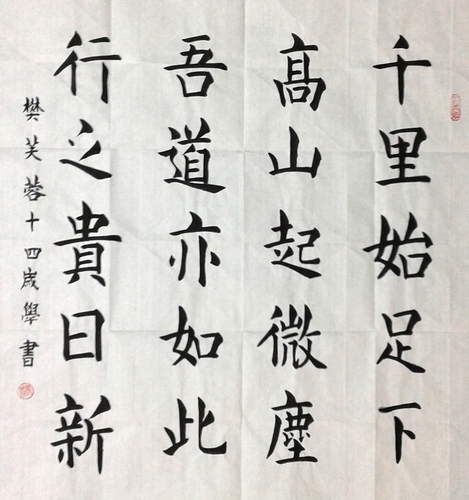 千里始足下
高山起微塵
吾道亦如此
行之貴日新
樊芙蓉十四歲學書